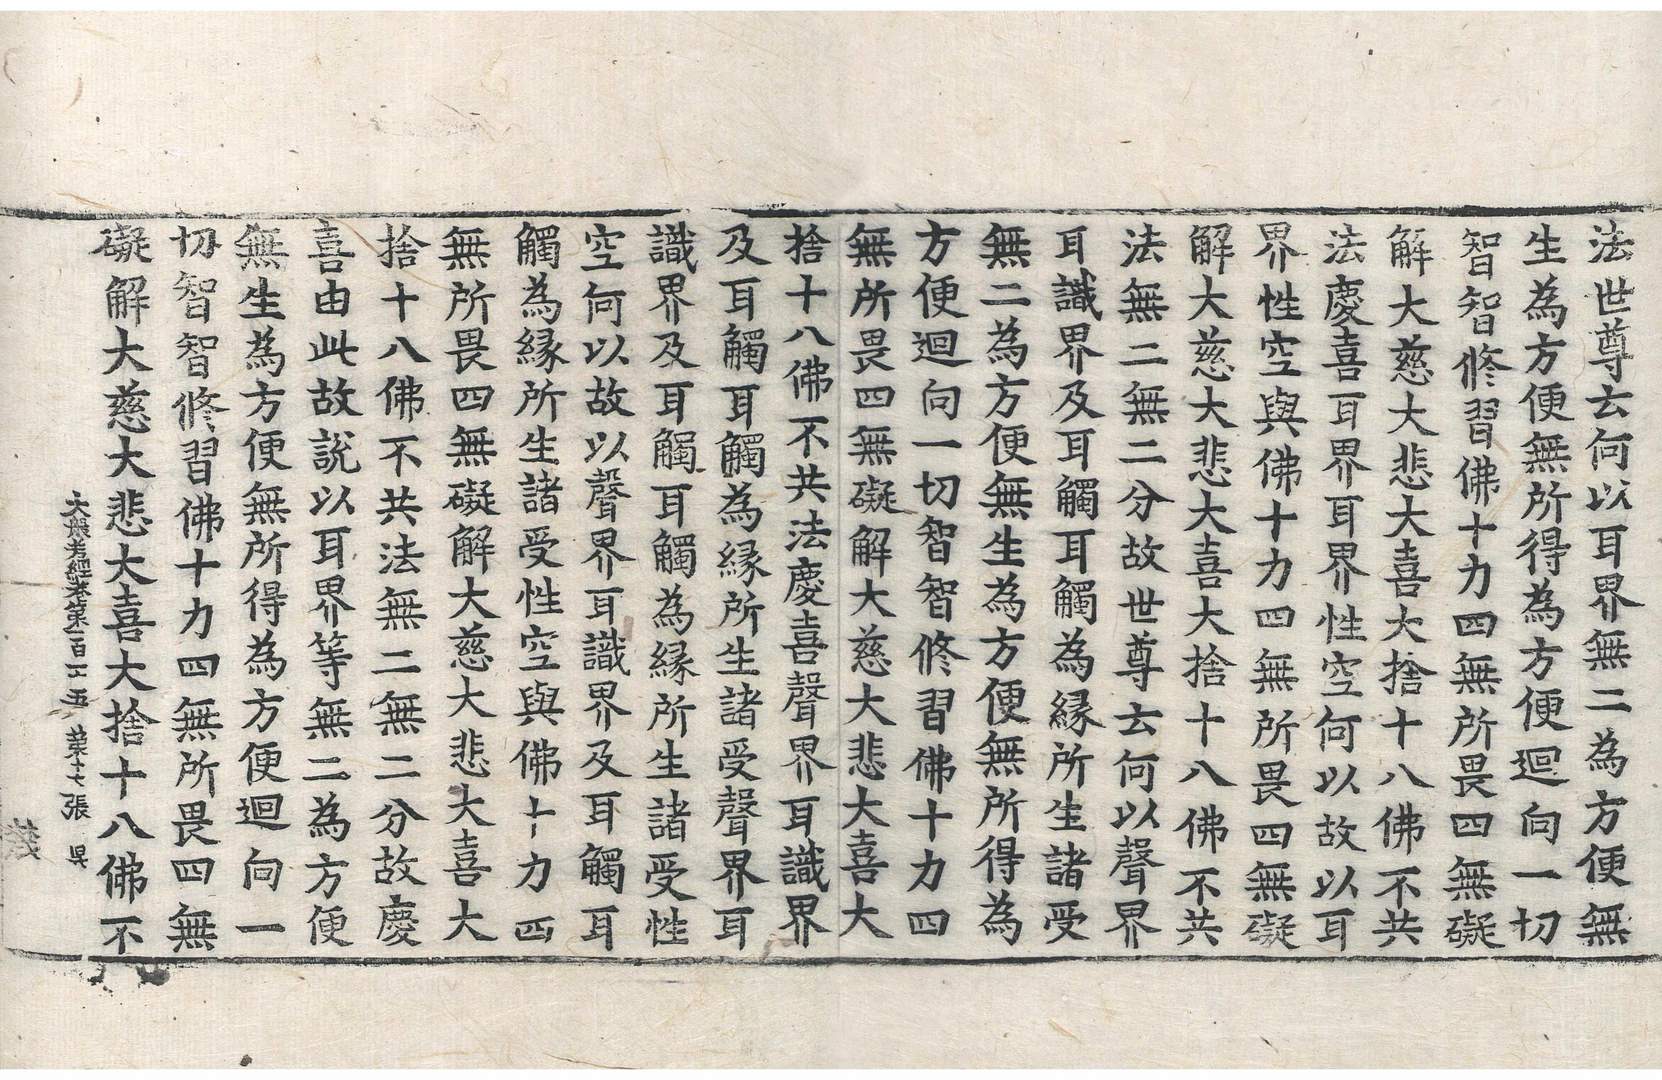 法世尊云何以耳界無二為方便無
生為方便無所得為方便迴向一切
智智修習佛十力四無所畏四無礙
解大慈大悲大喜大捨十八佛不共
法慶喜耳界耳界性空何以故以耳
界性空與佛十力四無所畏四無礙
解大慈大悲大喜大捨十八佛不共
法無二無二分故世尊云何以聲界
耳識界及耳觸耳觸為緣所生諸受
無二為方便無生為方便無所得為
方便迴向一切智智修習佛十力四
無所畏四無礙解大慈大悲大喜大
捨十八佛不共法慶喜聲界耳識界
及耳觸耳觸為緣所生諸受聲界耳
識界及耳觸耳觸為緣所生諸受性
空何以故以聲界耳識界及耳觸耳
觸為緣所生諸受性空與佛十力四
無所畏四無礙解大慈大悲大喜大
捨十八佛不共法無二無二分故慶
喜由此故說以耳界等無二為方便
無生為方便無所得為方便迴向一
切智智修習佛十力四無所畏四無
礙解大慈大悲大喜大捨十八佛不
大般若經卷第一百十五 第十七張